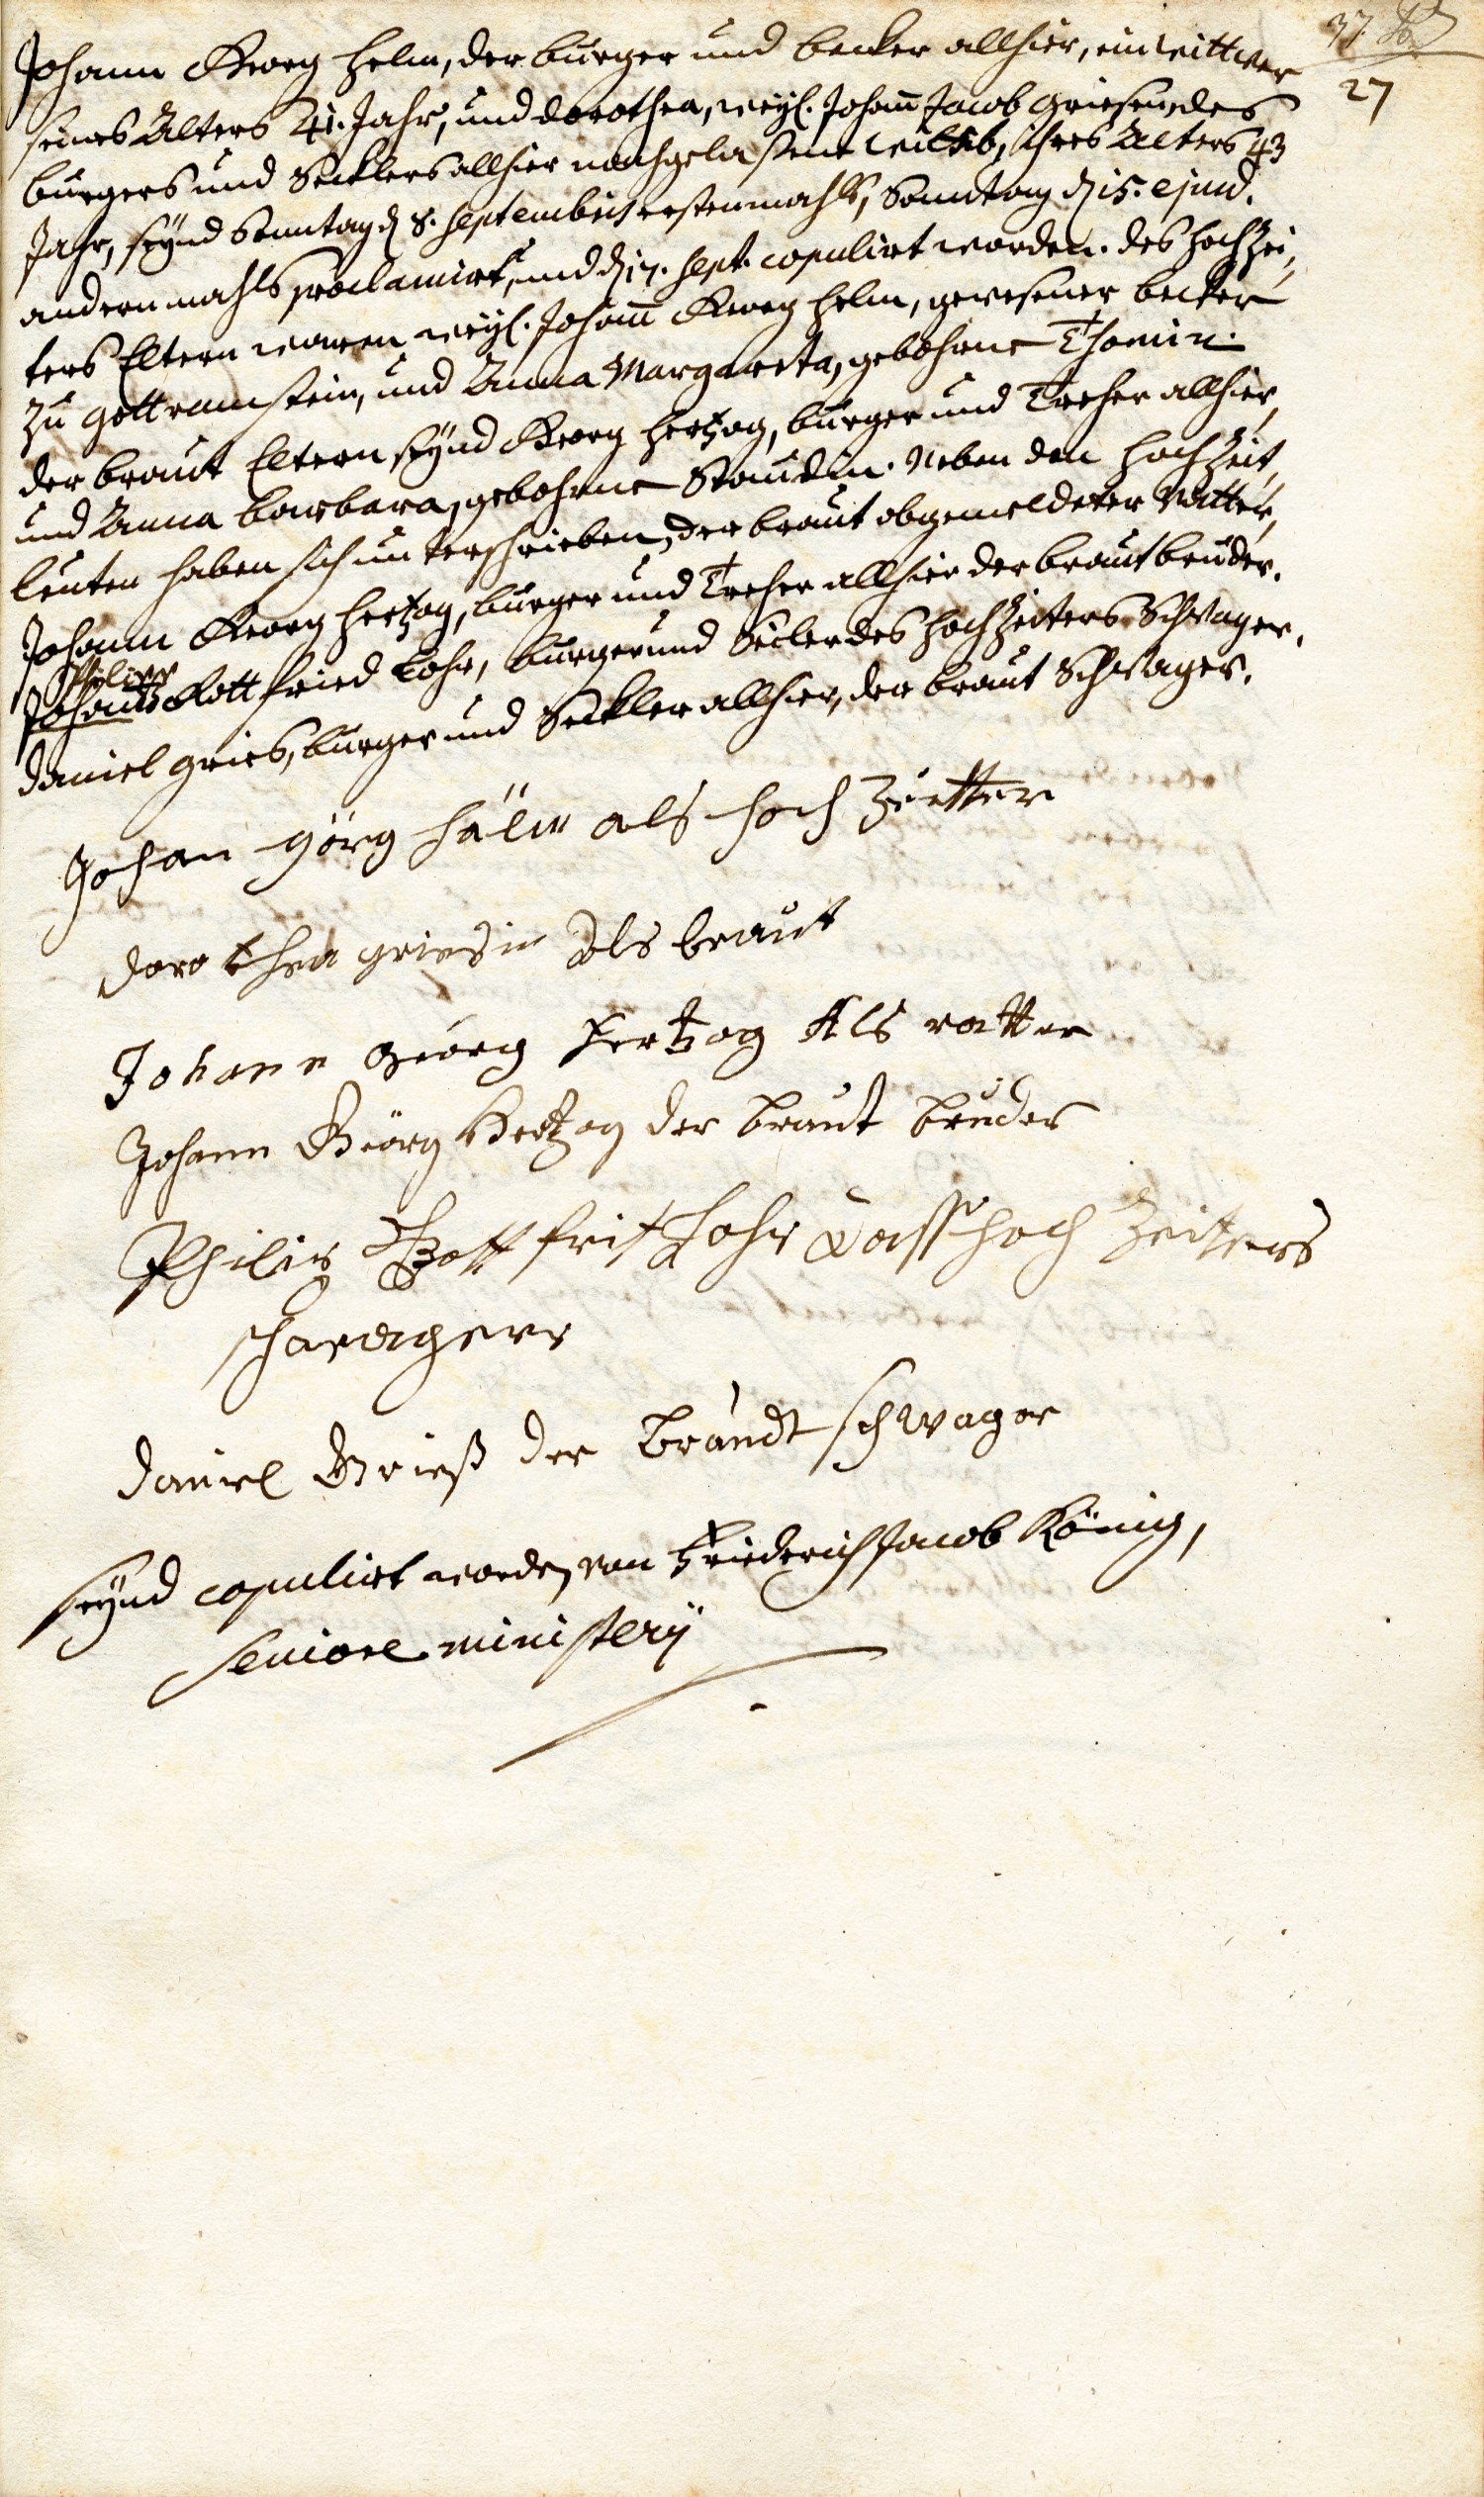 37.
27
Johann Georg Helm, der burger und becker allhier, ein Wittwer
seines Alters 41. Jahr, und Dorothea, weyl. Johann Jacob Griesen, des
burgers und Secklers allhier nachgelaßene Wittib, ihres Alters 43
Jahr, seynd Sonntag d. 8. Septembris erstenmahls, Sonntag d. 15. ejusd.
andernmahls proclamirt, und d. 17. Sept. copulirt worden. des Hochzei,
ters Eltern waren weyl. Johann Georg Helm, gewesener becker
zu Gottramstein, und Anna Margareta, gebohrne Thomin.
der braut Eltern seynd Georg Hertzog, burger und Treher allhier,
und Anna barbara, gebohrne Staudin. Neben den Hochzeit,
leuten haben sich unterschrieben, der braut obgemeldeter Vatter,
Johann Georg Hertzog, burger und Treher allhier der braut bruder.
Philipp
Johann Gottfried Lohr, burger und Seiler des Hochzeiters Schwager.
Daniel Gries, burger und Seckler allhier, der braut Schwager.
Johan Görg Hälm als Hoch Zeitter
Dorothea Griesin Als braut
Johann Georg Hertzog Als vatter
Johann Geörg Hertzog der braut bruder
Philip Gottfrit Lohr Dass Hoch Zeitters
schwagerr
Daniel Grieß der braudt schwager
seynd copulirt worden von Friederich Jacob König,
Seniore ministerÿ